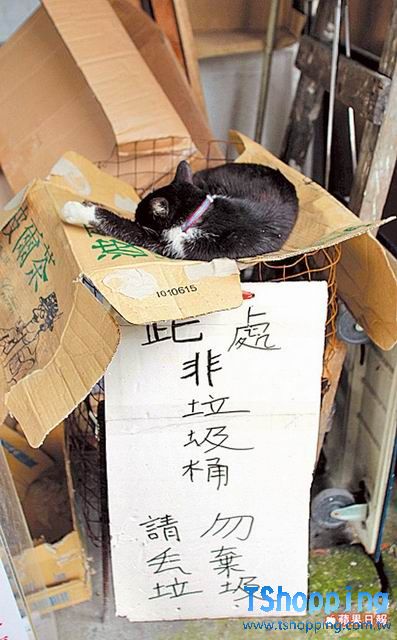 此處
非垃圾桶
請勿
丢棄
垃圾
爾茶
1010615
TShopping
www.tshopping.com.tw
蘋果日報